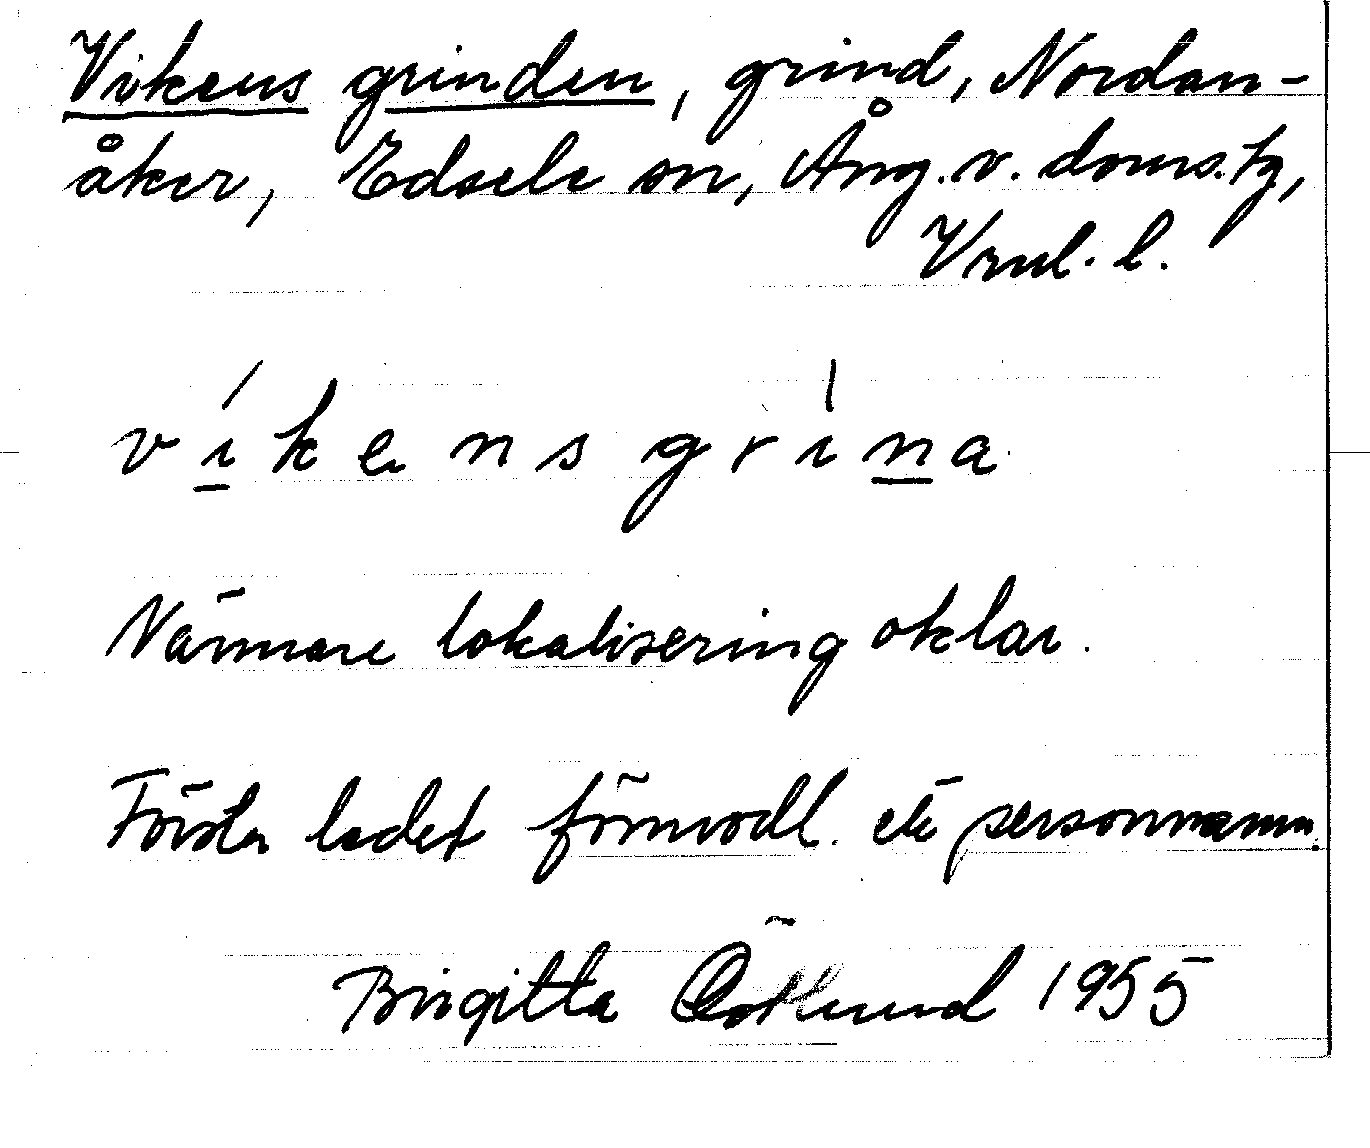 Vikens grinden, grind, Nordan-
åker, Edsele sn, Ång. v. doms. tg,
Vrnl. l.
víkensgrína
Närmare lokalisering oklar.
Första ledet förmodl. ett personnamn.
Birgitta Östlund 1955